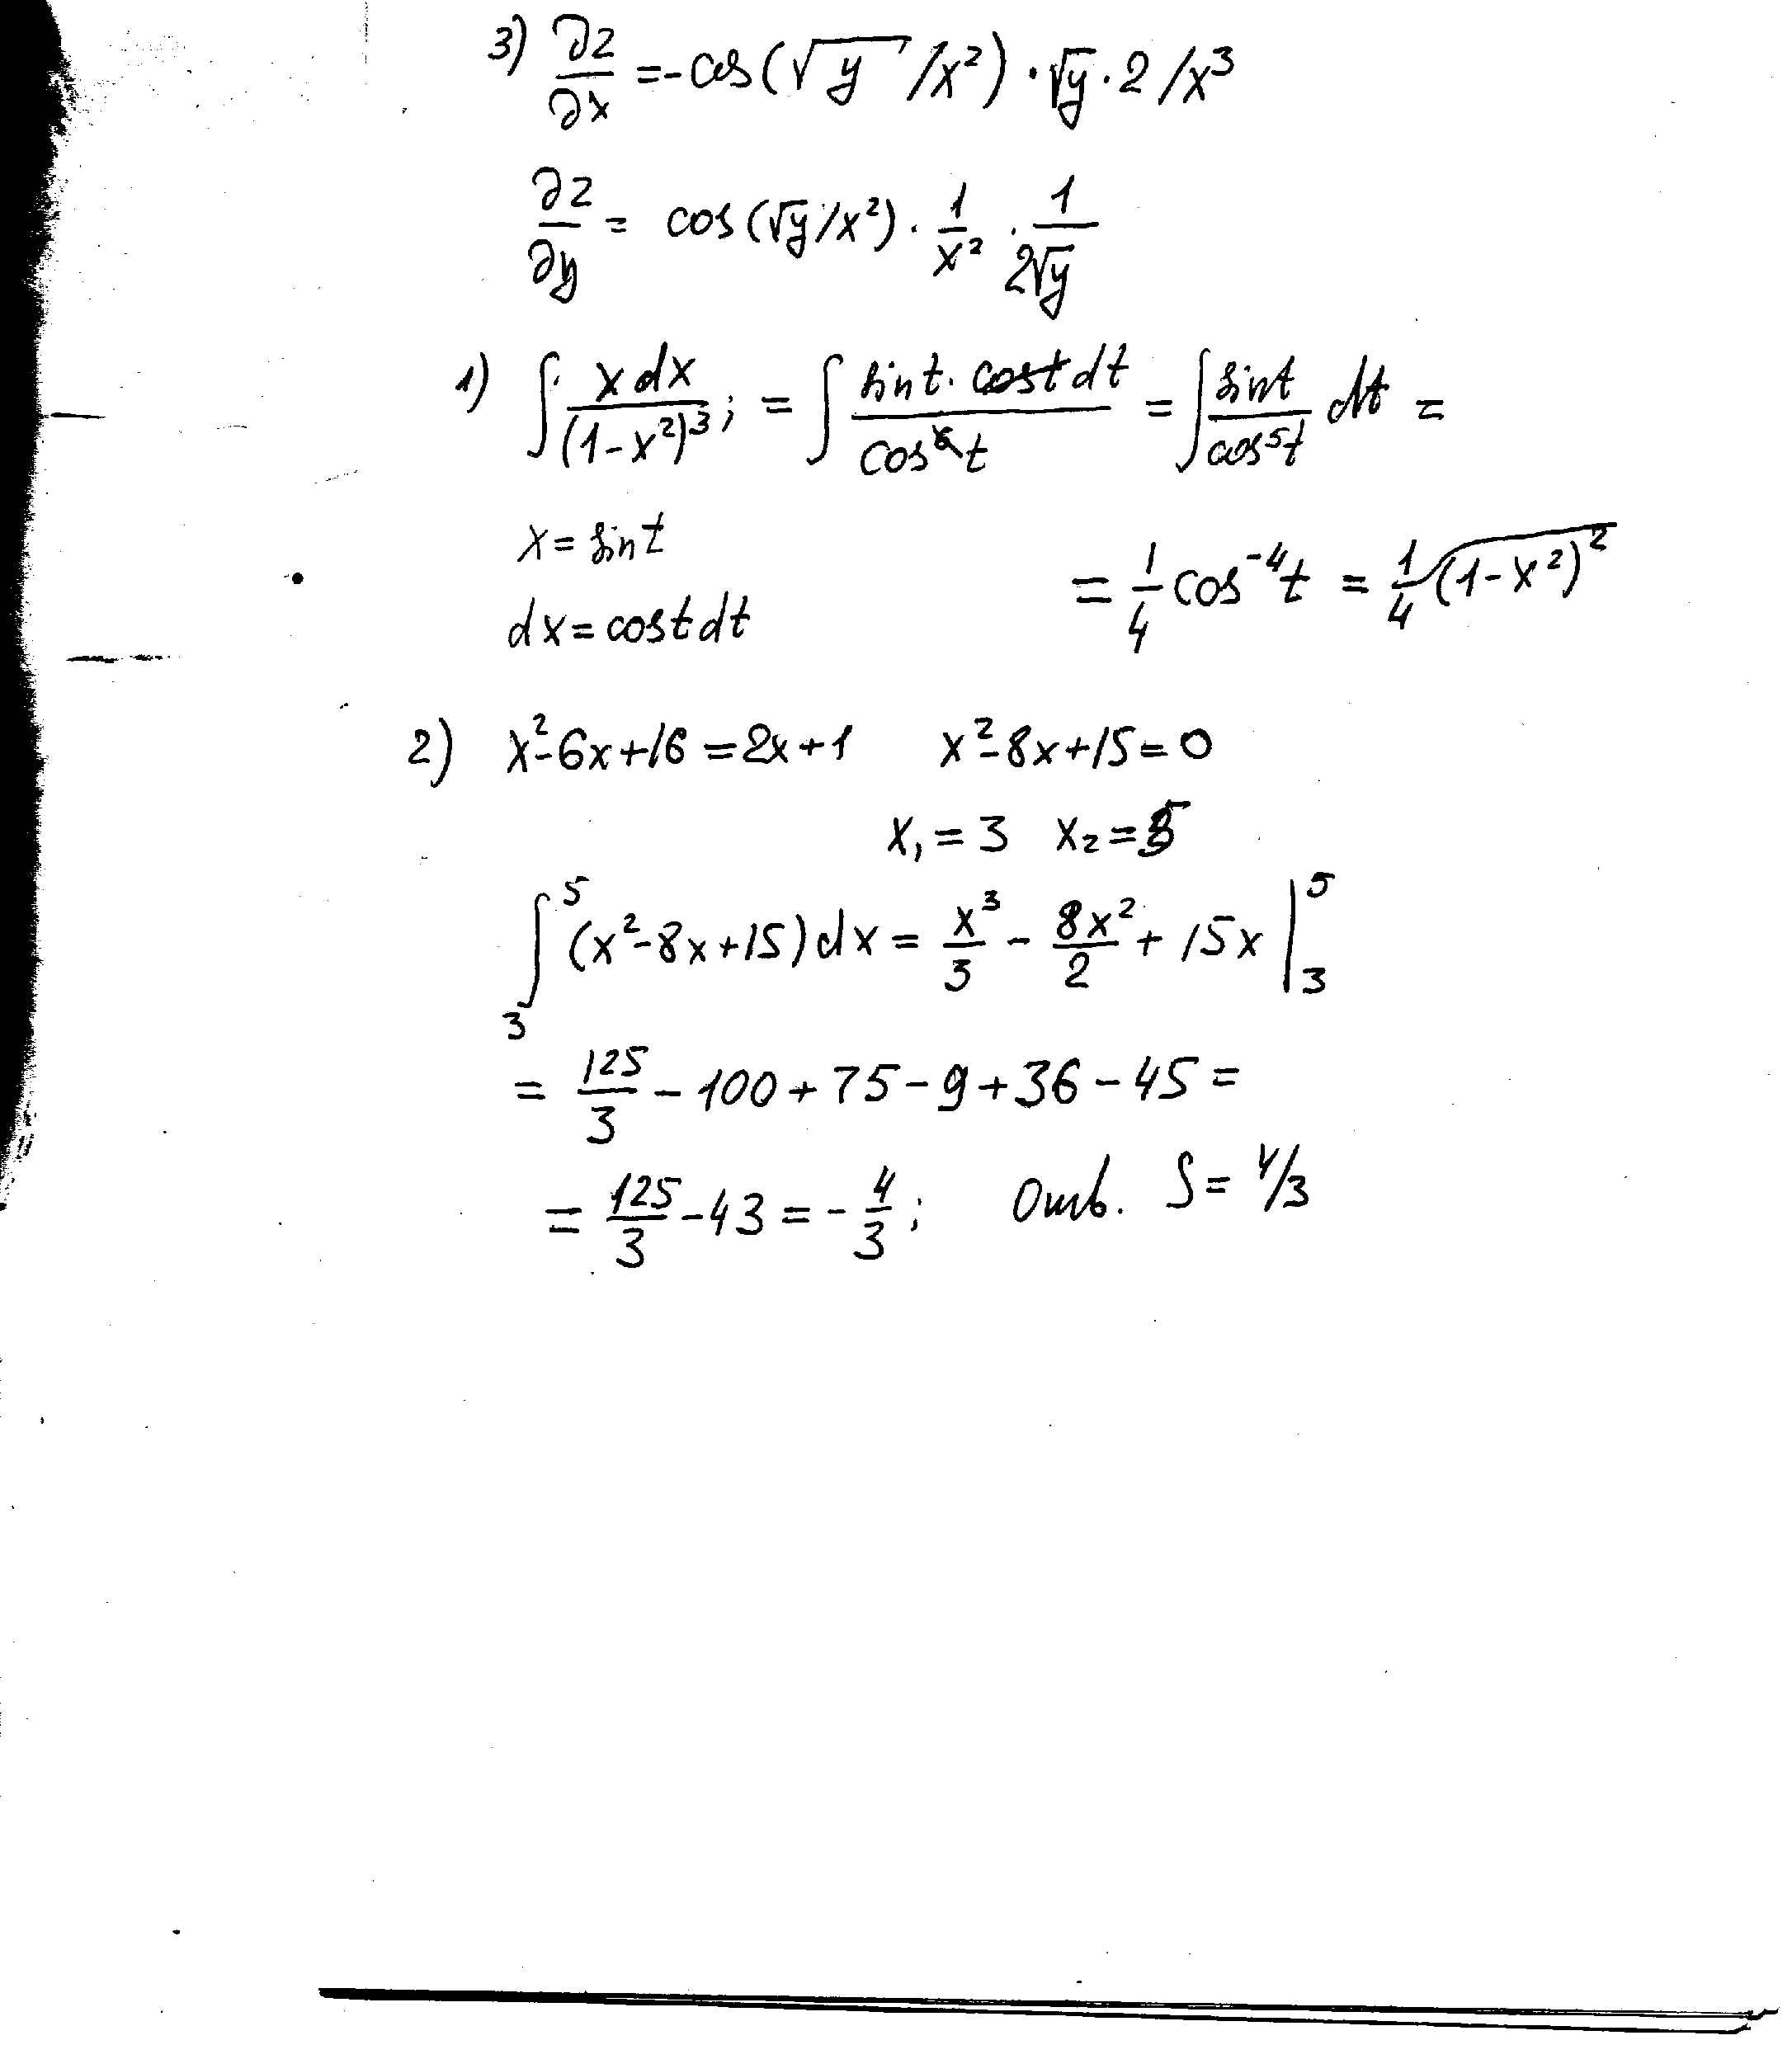 3) ∂z/∂x = -cos(√y /x²) · √y · 2 /x³
∂z/∂y = cos(√y/x²) · 1/x² · 1/(2√y)
1) ∫ x dx/(1-x²)³ ; = ∫ sin t · cos t dt / cos⁶ t = ∫ sin t / cos⁵ t dt =
x = sin t
= 1/4 cos⁻⁴ t = 1/4 (1-x²)²
dx = cos t dt
2) x²-6x+16 = 2x+1 x²-8x+15=0
x₁ = 3 x₂ = 5
∫₃⁵ (x²-8x+15) dx = x³/3 - 8x²/2 + 15x |₃⁵
= 125/3 - 100 + 75 - 9 + 36 - 45 =
= 125/3 - 43 = - 4/3 ; Отв. S = 4/3